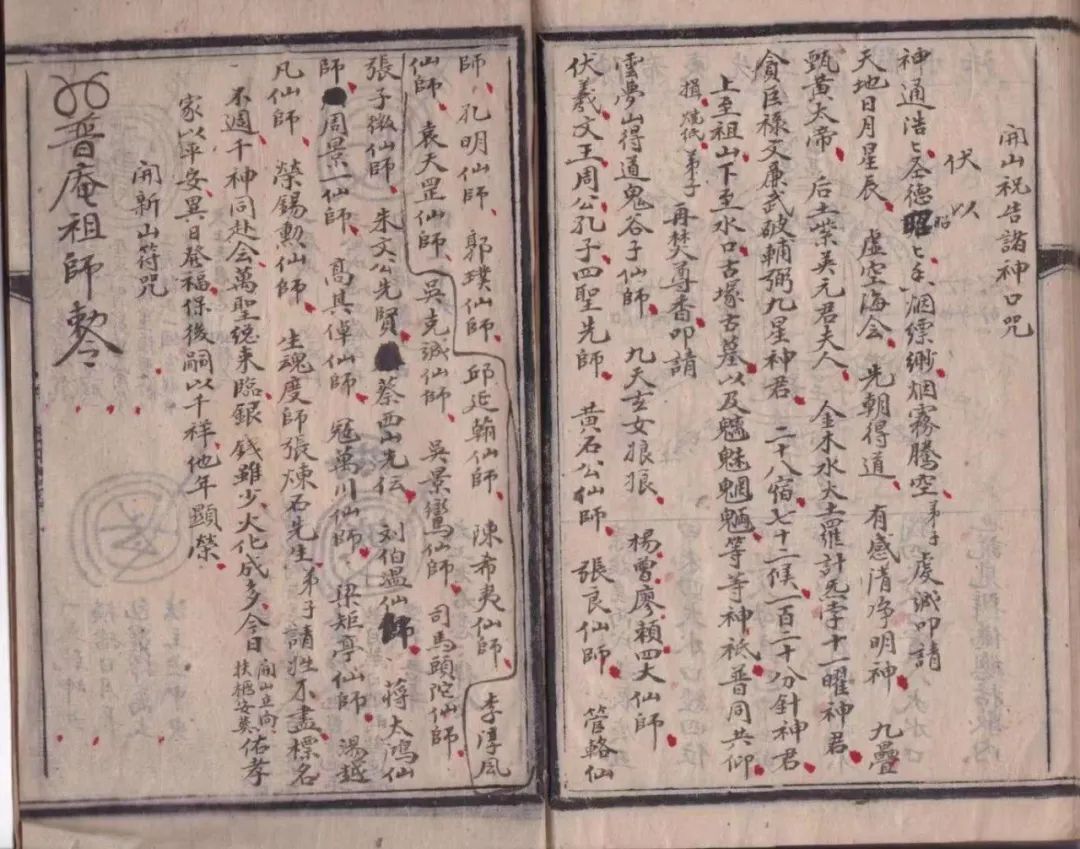 開山祝告諸神口咒
伏以
神通浩々圣德昭々香烟缥緲烟霧騰空弟子虔誠叩請
天地日月星辰 虛空海会 先朝得道 有感清净明神 九疊
甄黃太帝 后土紫英元君夫人 金木水火土羅計炁孛十一曜神君
貪巨禄文廉武破輔弼九星神君 二十八宿七十二候一百二十分針神君
上至祖山下至水口古塚古墓以及魑魅魍魎等等神祇普同共仰
揖燒纸弟子再焚大尊香叩請
雲夢山得道鬼谷子仙師 九天玄女狼狼 楊曾廖賴四大仙師
伏羲文王周公孔子四聖先師 黃石公仙師 張良仙師 管輅仙
師 孔明仙師 郭璞仙師 邱延翰仙師 陳希夷仙師 李淳风
仙師 袁天罡仙師 吳克诚仙師 吳景鸞仙師 司馬頭陀仙師
張子微仙師 朱文公先賢 蔡西山先伝 刘伯温仙師 蒋大鴻仙
師 周景一仙師 高其倬仙師 冦萬川仙師 梁矩亭仙師 湯越
凡仙師 榮錫勲仙師 生魂度師張煉石先生弟子請姓不盡標名
不週千神同赴会萬聖總来臨銀錢雖少火化成多今日開山立向扶柩安葬佑孝
家以平安異日發福保後嗣以千祥他年顯榮
開新山符咒
普庵祖師敕令